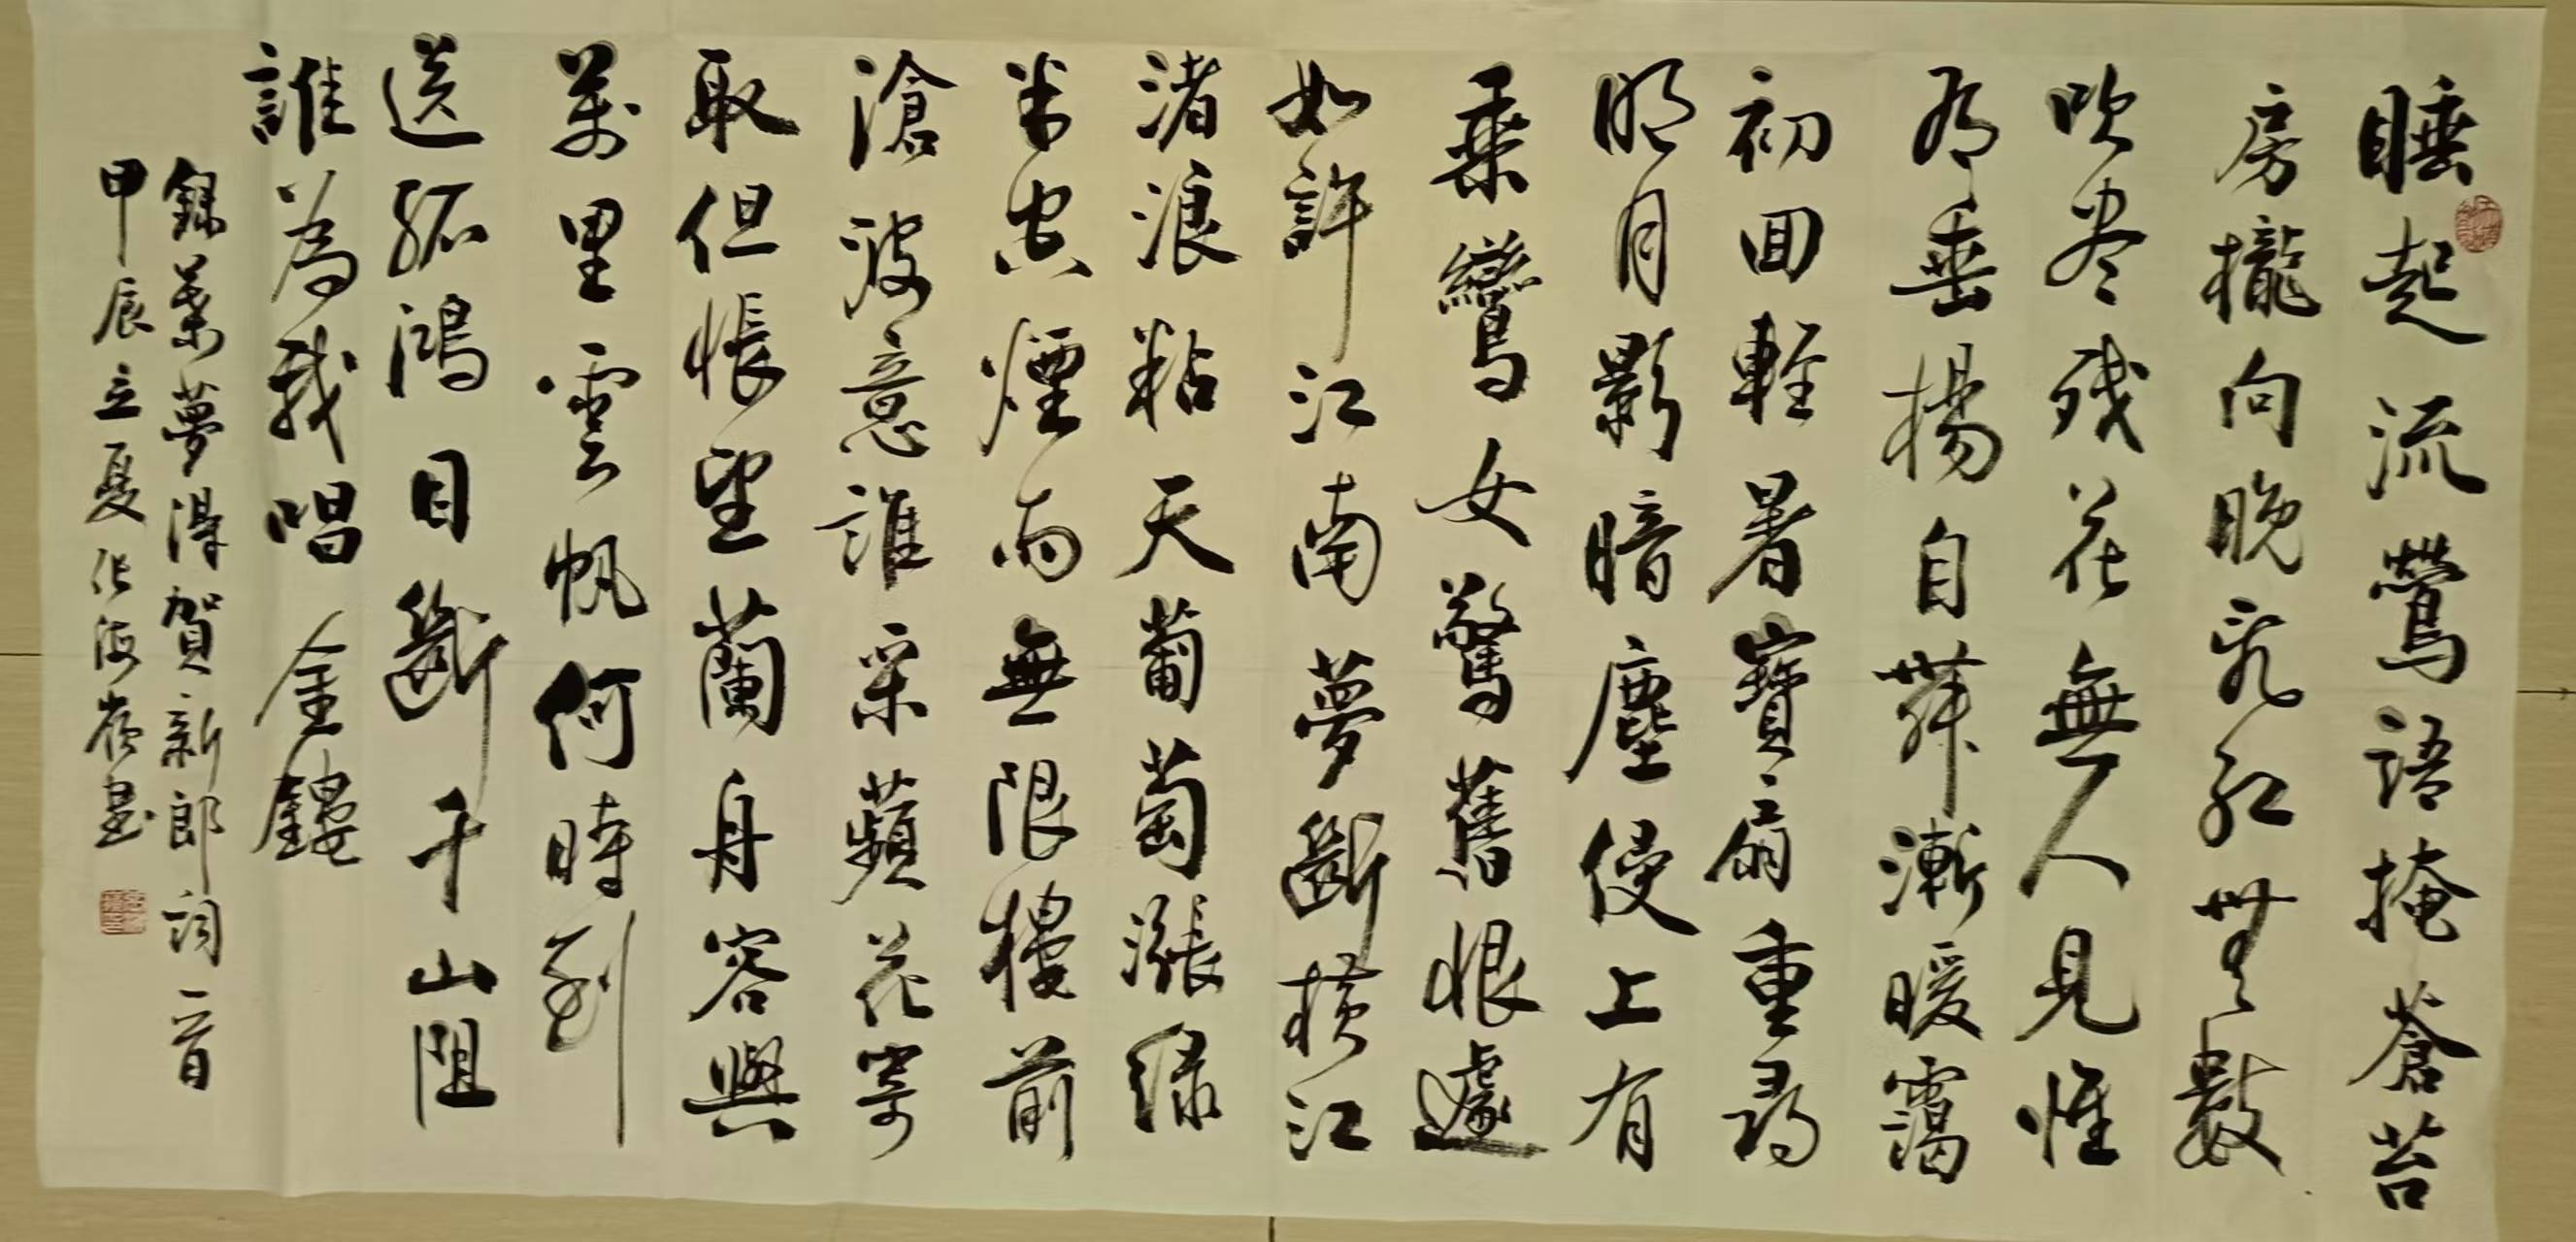 睡起流鶯語掩蒼苔
房櫳向晚乱紅無數
吹尽残花無人見惟
有垂楊自舞漸暖靄
初回輕暑寶扇重尋
明月影暗塵侵上有
乘鸞女驚舊恨遽
如許江南夢斷橫江
渚浪粘天葡萄漲綠
半空煙雨無限樓前
滄波意誰采蘋花寄
取但悵望蘭舟容與
萬里雲帆何時到
送孤鴻目斷千山阻
誰為我唱金鏤
錄葉夢得賀新郎詞一首
甲辰立夏